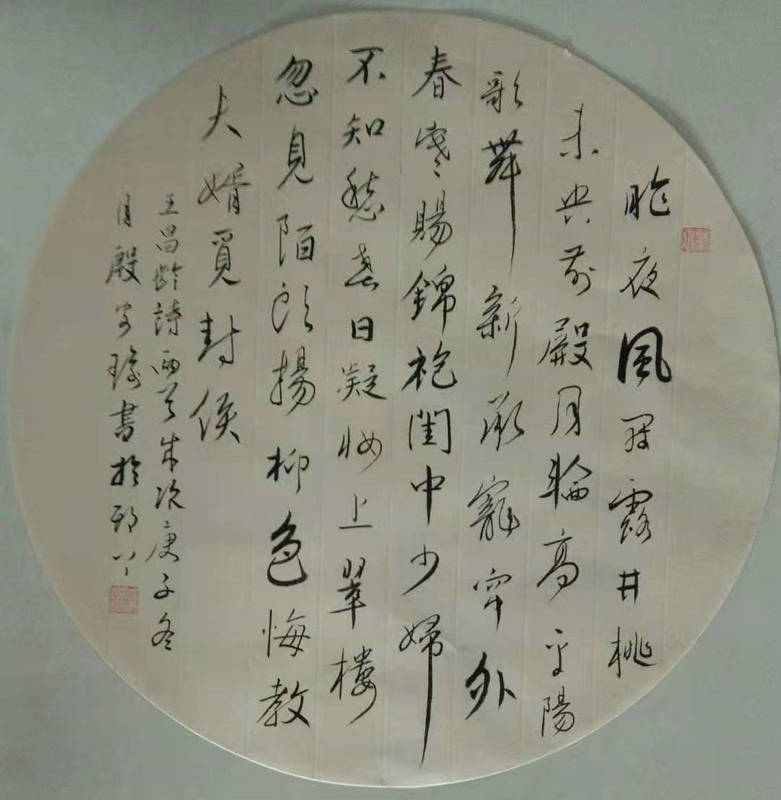 昨夜風開露井桃
未央前殿月輪高平陽
歌舞新承寵帘外
春寒賜錦袍閨中少婦
不知愁春日凝妝上翠樓
忽見陌頭楊柳色悔教
夫婿覓封侯
王昌齡詩兩首歲次庚子冬
月殷书於